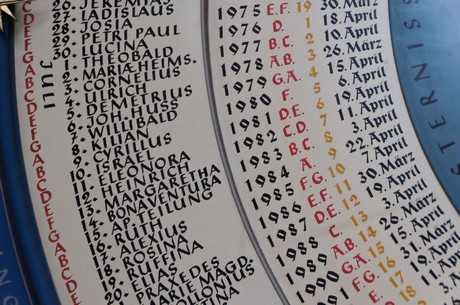 C 26. JEREMIAS
D 27. LADISLAUS
E 28. JOSUA
F 29. PETRI PAUL
G 30. LUCINA
JULI
1. THEOBALD
2. MARIÆ HEIMS.
3. CORNELIUS
4. ULRICH
5. DEMETRIUS
6. JOH. HUSS
7. WILLIBALD
8. KILIAN
9. CYRILLUS
10. ISRAEL
11. ELEONORA
12. HEINRICH
13. MARGARETHA
14. BONAVENTURA
15. AP. TEILUNG
16. RUTH
17. ALEXIUS
18. ROSINA
19. RUFFINA
20. ELIAS
PRAXEDES
MARIE MAGD.
1975 E.F. 19 30. März
1976 D. 1 18. April
1977 B.C. 2 10. April
1978 A.B. 3 26. März
1979 G.A. 4 15. April
1980 F. 5 6. April
1981 D.E. 6 19. April
1982 C.D. 7 11. April
1983 B.C. 8 3. April
1984 A. 9 22. April
1985 F.G. 10 7. April
1986 E.F. 11 30. März
1987 D.E. 12 19. April
1988 C. 13 3. April
1989 A.B. 14 26. März
1990 G.A. 15 15. April
F.G. 16
STERNIS